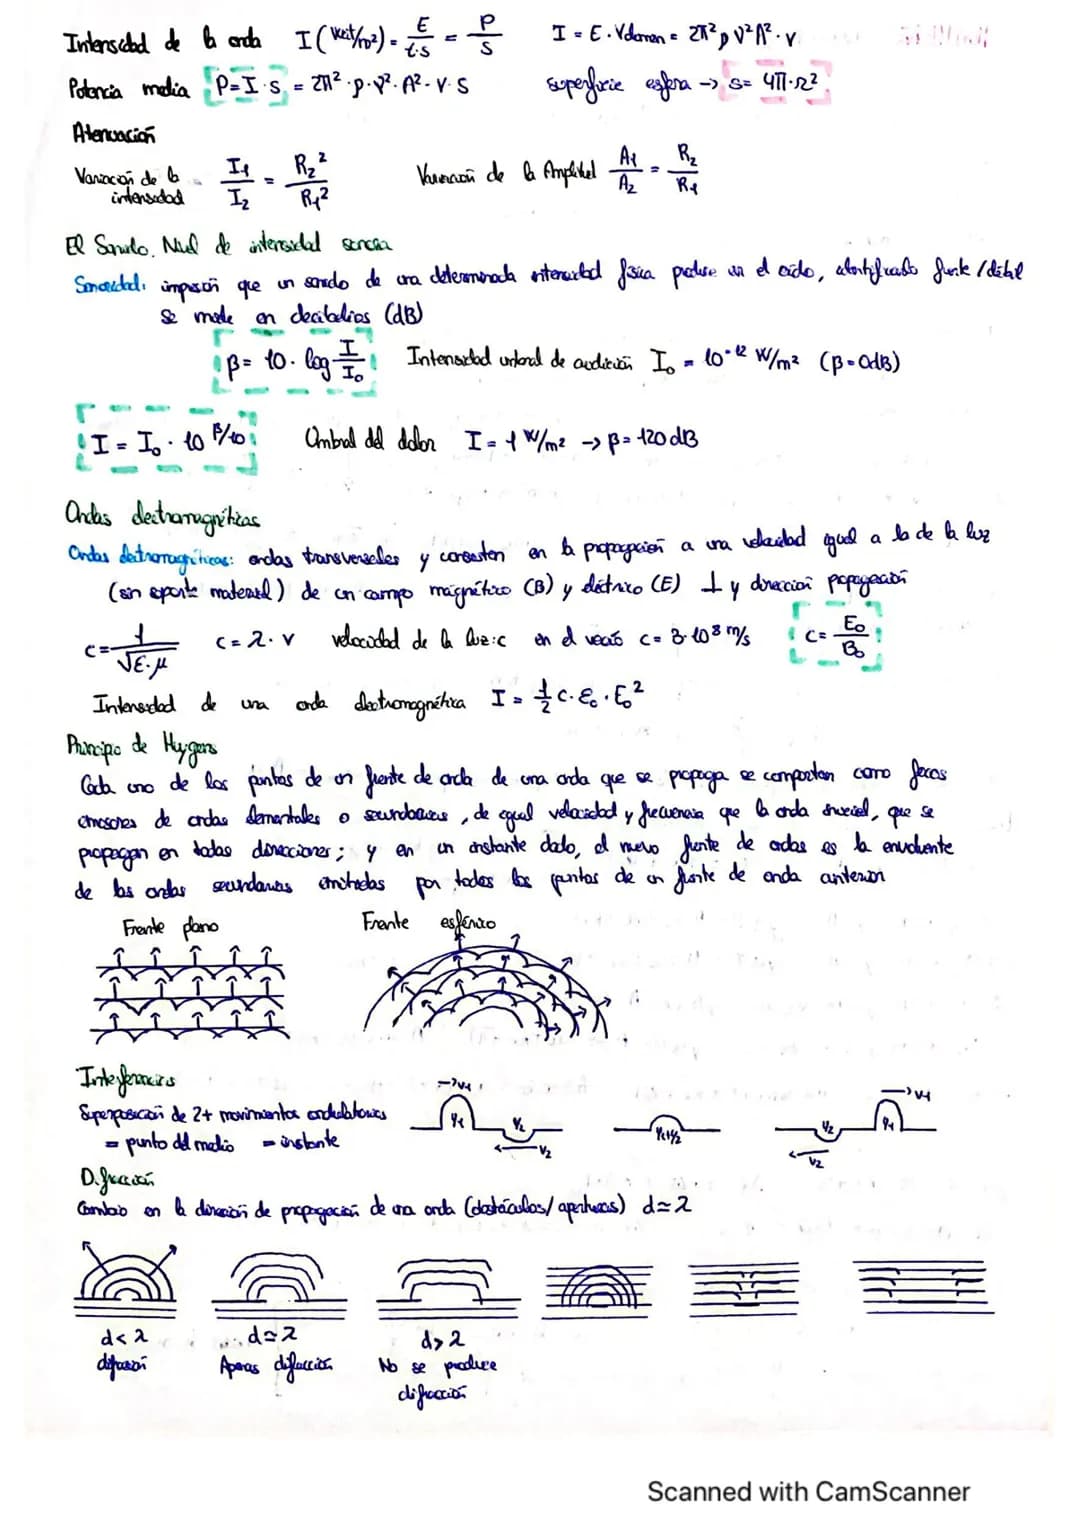 Intensidad de la onda I (Watt/m²) = E/t·s = P/S I = E · Vdonen = 2π² ρ ν² A² · v
Potencia media P = I · S = 2π² · ρ · ν² · A² · v · S superficie esfera -> S = 4π · r²
Atenuación
Variación de la intensidad I₁/I₂ = R₂²/R₁² Variación de la Amplitud A₁/A₂ = R₂/R₁
El Sonido. Nivel de intensidad sonora
Sonoridad: impresión que un sonido de una determinada intensidad física produce en el oído, identificado fuerte / débil
se mide en decibelios (dB)
β = 10 · log I/I₀ Intensidad umbral de audición I₀ = 10⁻¹² W/m² (β = 0dB)
I = I₀ · 10^β/10 Umbral del dolor I = 1 W/m² -> β = 120 dB
Ondas electromagnéticas
Ondas electromagnéticas: ondas transversales y consisten en la propagación a una velocidad igual a la de la luz
(sin soporte material) de un campo magnético (B) y eléctrico (E) ⊥ y dirección propagación
c = 1/√ε·μ c = λ · ν velocidad de la luz: c en el vacío c = 3·10⁸ m/s c = E₀/B₀
Intensidad de una onda electromagnética I = 1/2 c · ε₀ · E₀²
Principio de Hygens
Cada uno de los puntos de un frente de onda de una onda que se propaga se comportan como focos
emisores de ondas elementales o secundarias, de igual velocidad y frecuencia que la onda inicial, que se
propagan en todas direcciones; y en un instante dado, el nuevo frente de ondas es la envolvente
de las ondas secundarias emitidas por todos los puntos de un frente de onda anterior
Frente plano Frente esférico
Interferencias
Superposición de 2+ movimientos ondulatorios
= punto del medio = instante
->v₁ y₁ y₂ <- v₂ y₁+y₂ y₂ <- v₂ y₁ ->v₁
Difracción
Cambio en la dirección de propagación de una onda (obstáculos/ aperturas) d≃λ
d<λ d≃λ d>λ
difusión Apenas difracción No se produce
difracción
Scanned with CamScanner